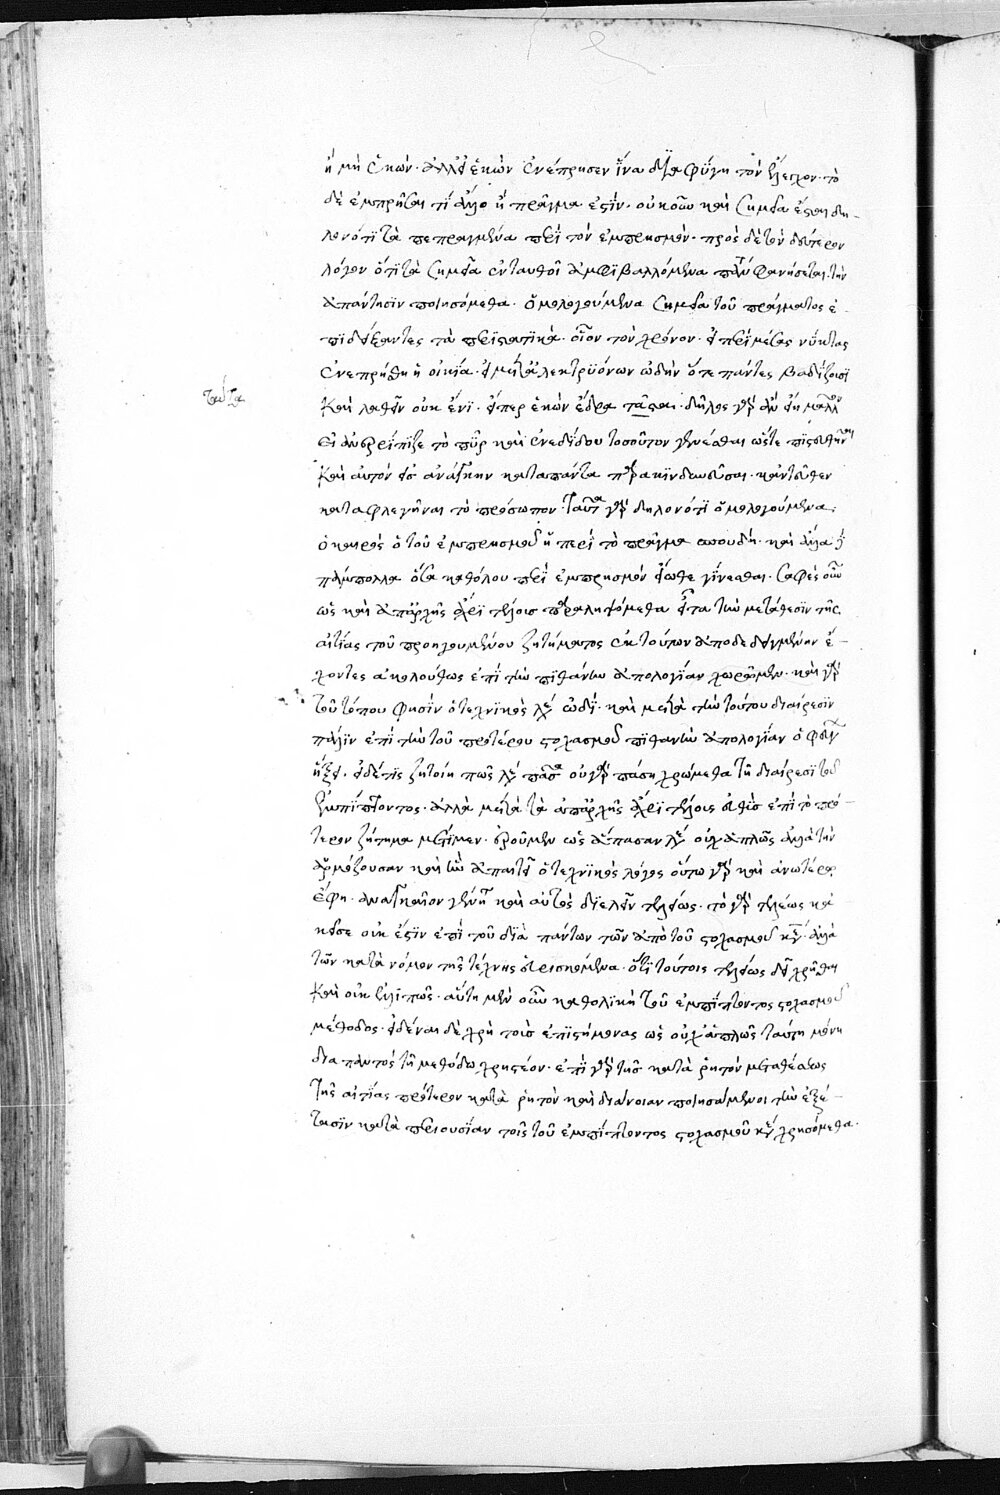 ἢ μὴ ἑκών· ἀλλ' εἰ ἑκὼν ἐνέπρησεν ἵνα διαφύγῃ τὸν ἔλεγχον· τὸ
δὲ ἐμπρῆσαι τί ἄλλο ἢ πρᾶγμα ἐστίν· οὐκοῦν καὶ σημεῖα ἔσται δη-
λονότι τὰ πεπραγμένα περὶ τὸν ἐμπρησμόν· πρὸς δὲ τὸν δεύτερον
λόγον ὅτι τὰ σημεῖα ἐνταυθοῖ ἀμφιβαλλόμενα φανήσεται· τὴν
ἀπάντησιν ποιησόμεθα· ὁμολογούμενα σημεῖα τοῦ πράγματος ἐ-
πιδείξαντες τὰ περιστατικά· οἷον τὸν χρόνον· εἰ περὶ μέσας νύκτας
ἐνεπρήσθη ἡ οἰκία· εἰ μετὰ ἀλεκτρυόνων ᾠδὴν ὅτε πάντες βαδίζουσι
ταῦτα
καὶ λαθεῖν οὐκ ἔνι· εἴπερ ἑκὼν ἔδρα· δῆλος γὰρ ἂν εἴη μᾶλλον
εἰ ἀνερρίπιζε τὸ πῦρ καὶ ἐνεδίδου τοσοῦτον γενέσθαι ὥστε
καὶ αὐτὸν εἰς ἀνάγκην καταπάντα παρακινδυνεῦσαι· κἀντεῦθεν
καταφλεγῆναι τὸ πρόσωπον· ταῦτα γὰρ δηλονότι ὁμολογούμενα·
ὁ καιρὸς ὁ τοῦ ἐμπρησμοῦ ἡ περὶ τὸ πρᾶγμα σπουδή· καὶ ἄλλα
πάμπολλα ὅσα καθόλου περὶ ἐμπρησμὸν εἴωθε γίνεσθαι· σαφὲς οὖν
ὡς καὶ ἀπαρχῆς ἄχρι τέλους παραληψόμεθα εἶτα τὴν μετάθεσιν τῆς
αἰτίας τοῦ προηγουμένου ζητήματος ἐκ τούτων ἀποδεδειγμένην ἔ-
χοντες ἀκολούθως ἐπὶ τὴν πιθανὴν ἀπολογίαν χωροῦμεν· καὶ γὰρ
τοῦ τόπου φησὶν ὁ τεχνικὸς ὡδί· καὶ μετὰ τὴν τούτου διαίρεσιν
πάλιν ἐπὶ τὴν τοῦ προτέρου στοχασμοῦ πιθανὴν ἀπολογίαν ὁ φεύγων
ἥξει· εἰ δέ τις ζητοίη πῶς οὐ γὰρ πάσῃ χρώμεθα τῇ διαιρέσει τοῦ
ἐμπίπτοντος· ἀλλὰ μετὰ τὰ ἀπαρχῆς ἄχρι τέλους εὐθὺς ἐπὶ τὸ πρό-
τερον ζήτημα μέτιμεν· ἐροῦμεν ὡς ἅπασαν οὐχ ἁπλῶς ἀλλὰ τὴν
ἁρμόζουσαν καὶ ἣν ἀπαιτεῖ ὁ τεχνικὸς λόγος οὕτω γὰρ καὶ ἀνωτέρω
ἔφη· ἀναγκαῖον καὶ αὐτὸς διελεῖν τελείως· τὸ γὰρ τελέως κἀ-
κεῖσε οὐκ ἔστιν ἐπὶ τοῦ διὰ πάντων τῶν ἀπὸ τοῦ στοχασμοῦ κεφαλαίων· ἀλλὰ
τῶν κατὰ νόμον τῆς τέχνης εὑρισκομένων· ὅτι τούτοις τελέως δεῖ χρῆσθαι
καὶ οὐκ ἐλλιπῶς· αὕτη μὲν οὖν καθολικὴ τοῦ ἐμπίπτοντος στοχασμοῦ
μέθοδος· εἰδέναι δὲ χρὴ τοὺς ἐπιστήμονας ὡς οὐχ ἁπλῶς ταύτῃ μόνῃ
δια παντὸς τῇ μεθόδῳ χρηστέον· ἐπὶ γὰρ τῆς κατὰ ῥητὸν μεταθέσεως
τῆς αἰτίας πρότερον κατὰ ῥητὸν καὶ διάνοιαν ποιησάμενοι τὴν ἐξέ-
τασιν κατὰ περιουσίαν τοῖς τοῦ ἐμπίπτοντος στοχασμοῦ κεφαλαίοις χρησόμεθα·